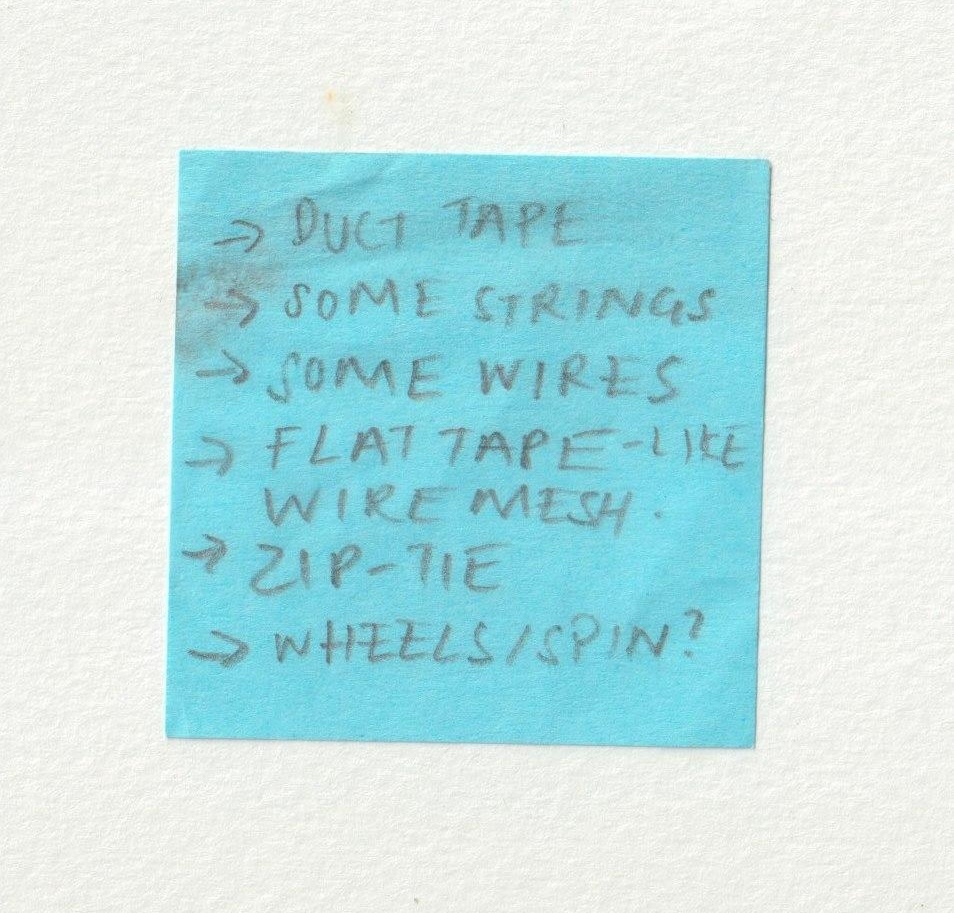 → DUCT TAPE
→ SOME STRINGS
→ SOME WIRES
→ FLAT TAPE-LIKE
WIRE MESH.
→ ZIP-TIE
→ WHEELS/SPIN?